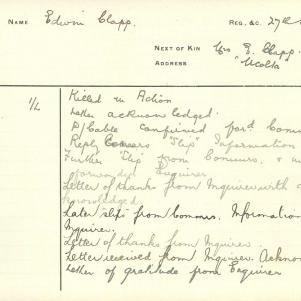 NAME Edwin Clapp. REG. &C. 27th
NEXT OF KIN Mrs E. Clapp
ADDRESS "Ucolta
1/L Killed in Action
Letter acknowledged.
P/Cable confirmed part Comm
Reply "Slip" Information
Further "Slip" from Commrs. &
forwarded Enquirer
Letter of thanks from Inquirer with
Acknowledged
Later slips from Commrs. Information
Inquirer.
Letter of thanks from Inquirer.
Letter received from Inquirer. Acknow
Letter of gratitude from Enquirer